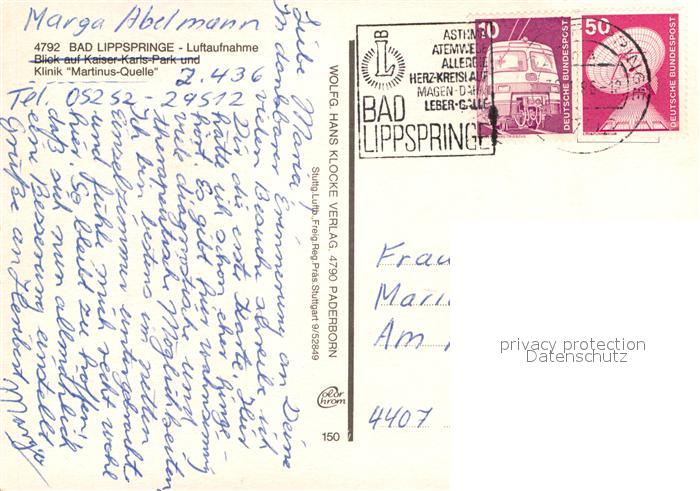 Marga Abelmann
4792 BAD LIPPSPRINGE - Luftaufnahme
Blick auf Kaiser-Karls-Park und
Klinik "Martinus-Quelle"
Z. 436
Tel. 05252 29512
Liebe Maria!
In dankbarer Erinnerung an Deine
vielen Besuche schreibe ich
Dir die erste Karte. Hier
hätte ich schon eher hinge-
hört. Es gibt hier wahnsinnig
viele diagnostische und
therapeutische Möglichkeiten
Ich bin bestens im netten
Einzelzimmer untergebracht
und fühle mich recht wohl
hier. So bleibt zu hoffen,
daß sich nun allmählich
eine Besserung einstellt
Grüße an Herbert
Marga
WOLFG. HANS KLOCKE VERLAG, 4790 PADERBORN
Stuttg. Luftb., Freig. Reg. Präs. Stuttgart 9/52849
color chrom
150
LB
ASTHMA
ATEMWEGE
ALLERGIE
HERZ·KREISLAUF
MAGEN·DARM
LEBER·GALLE
BAD
LIPPSPRINGE
10
DEUTSCHE BUNDESPOST
50
DEUTSCHE BUNDESPOST
Frau
Am
4407
privacy protection
Datenschutz